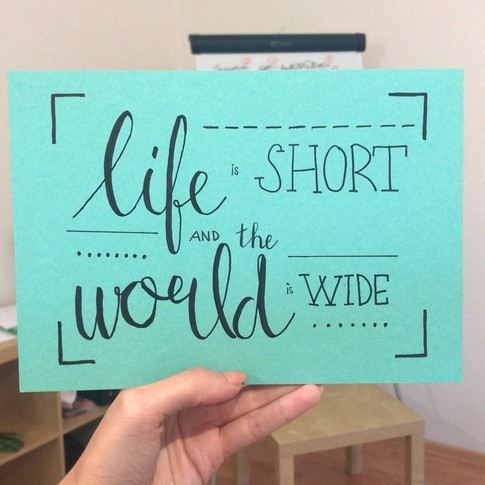 life is SHORT
AND the
world is WIDE